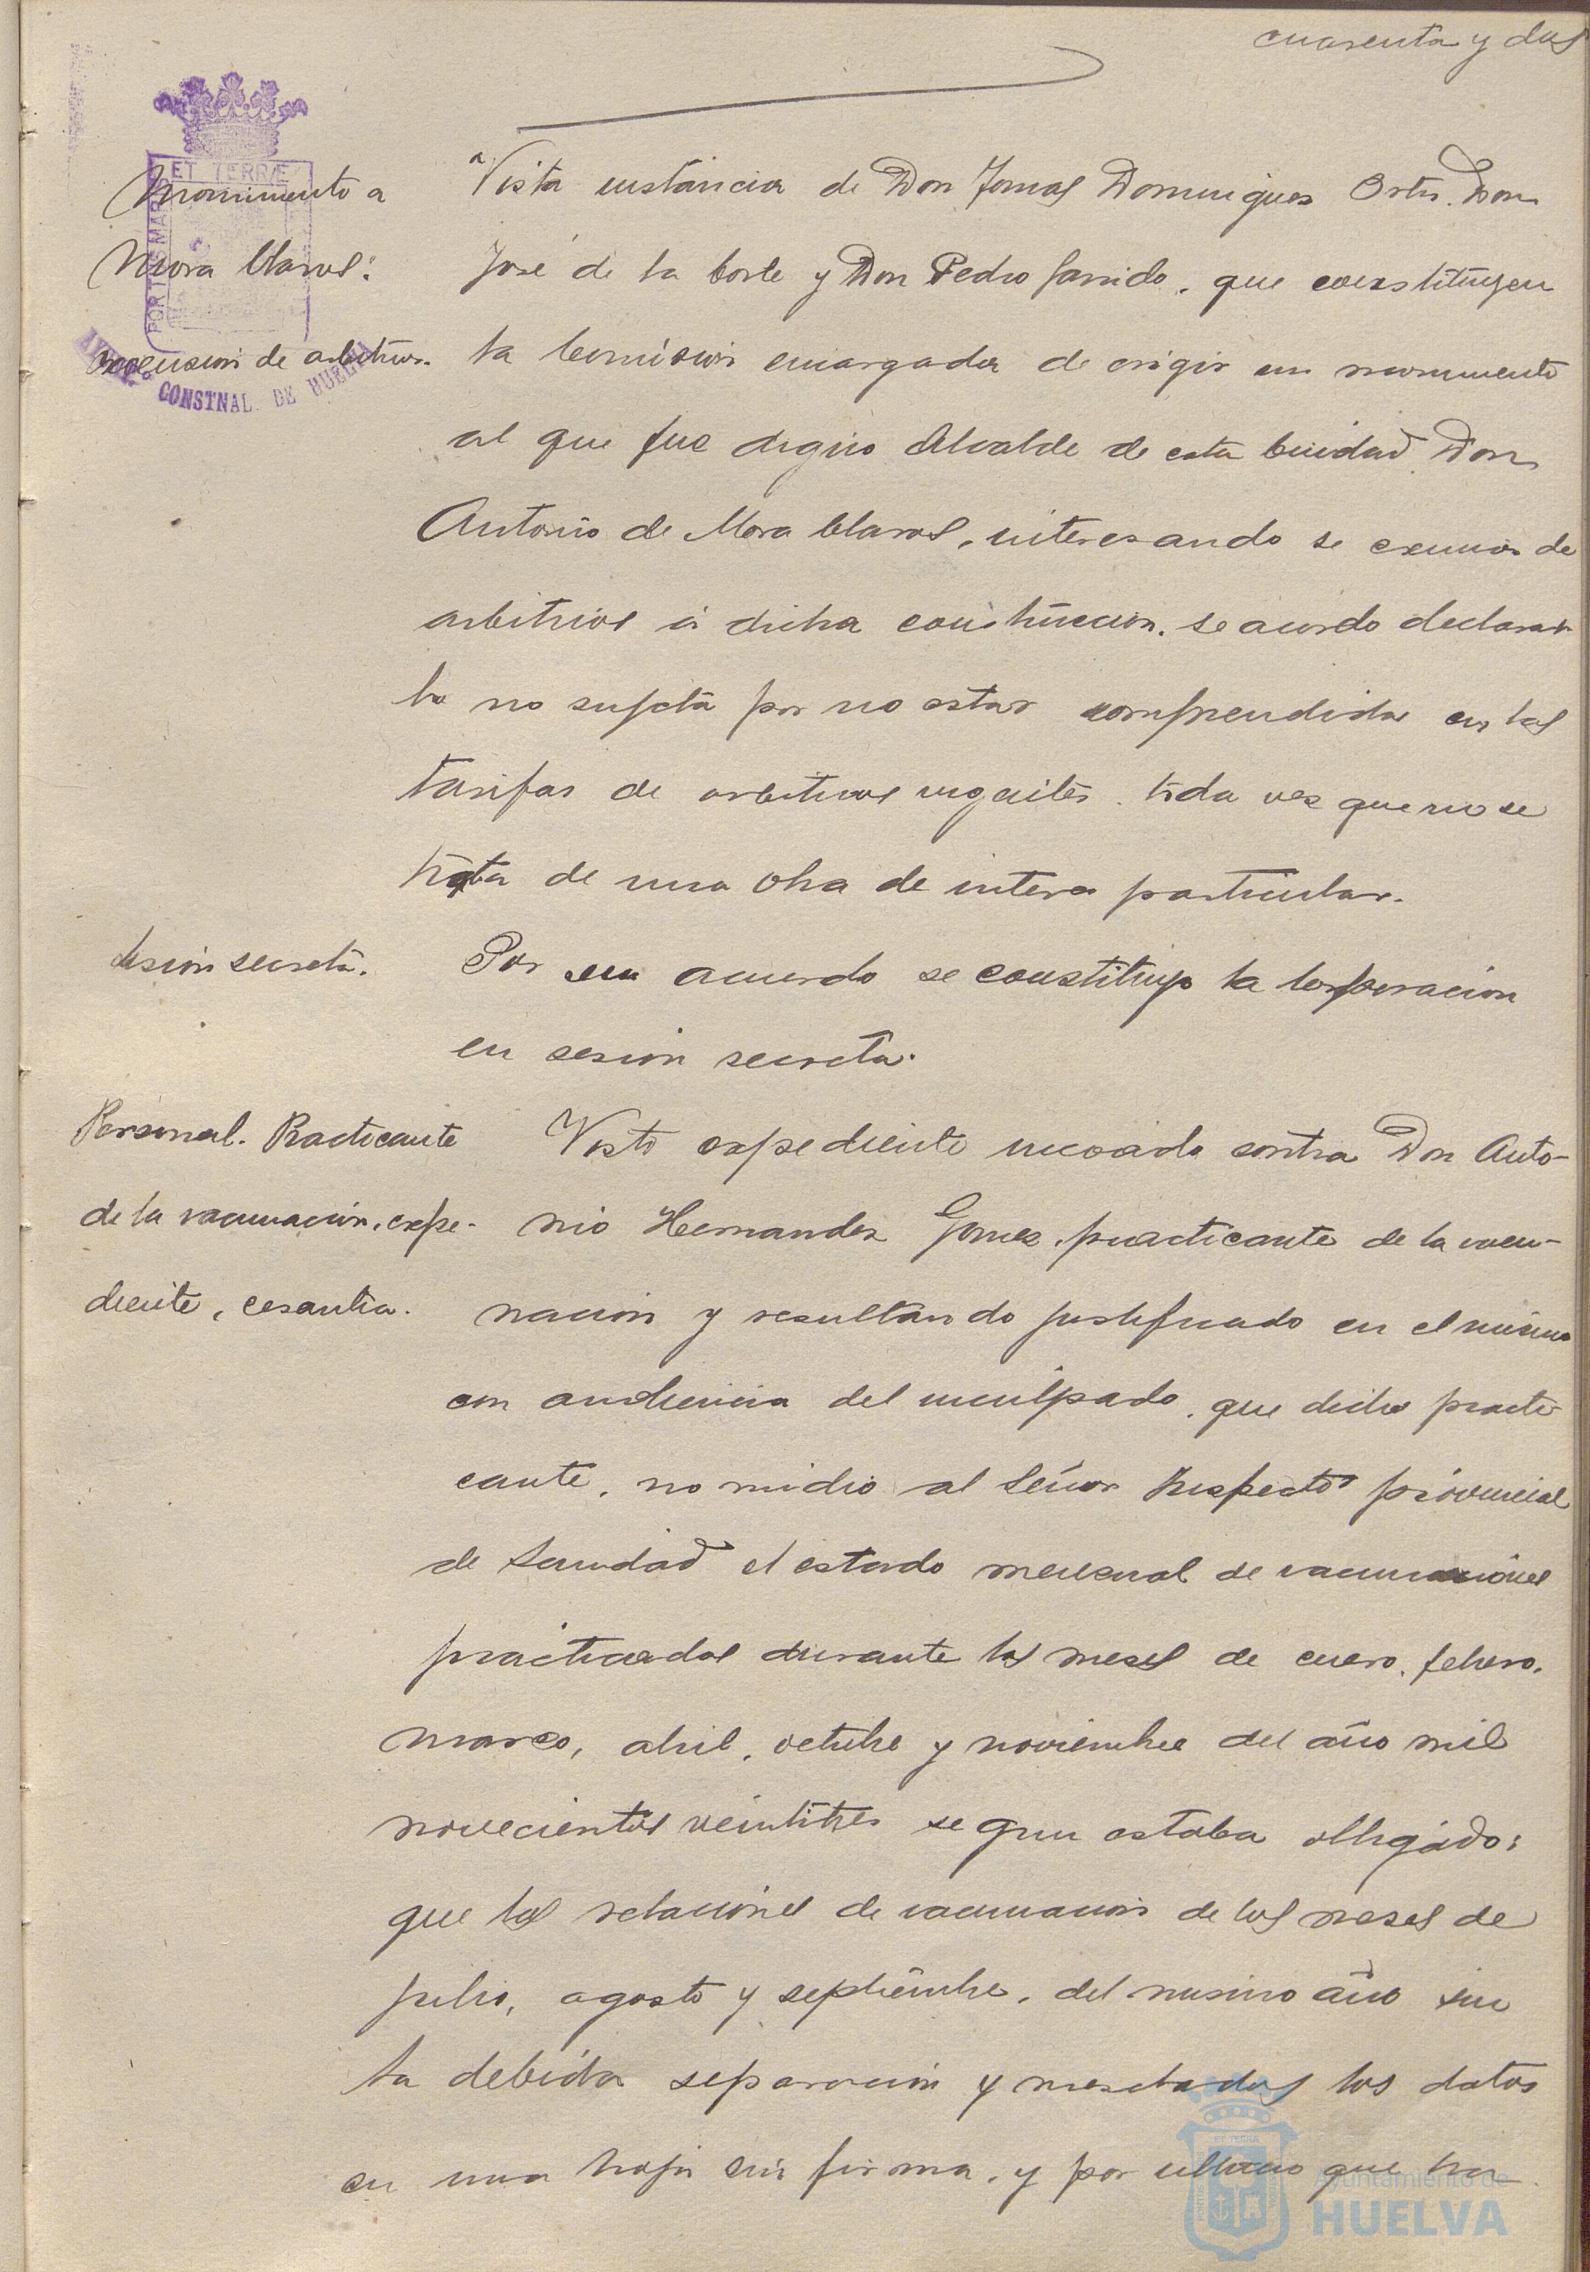 cuarenta y dos
Monumento a
Mora Claros:
exención de arbitrios.
ET TERRÆ
PORTUS MARIS
CONSTNAL. DE HUELVA
Vista instancia de Don Tomas Dominguez Ortiz. Don
José de la Corte y Don Pedro Garrido, que constituyen
la Comision encargada de erigir un monumento
al que fue digno Alcalde de esta Ciudad Don
Antonio de Mora Claros, interesando se exima de
arbitrios á dicha construccion, se acordo declarar
la no sujeta por no estar comprendida en las
tarifas de arbitrios vigentes, toda vez que no se
trata de una obra de interes particular.
Sesión secreta.
Por su acuerdo se constituyo la Corporacion
en sesion secreta.
Personal. Practicante
de la vacunación, expe-
diente, cesantia.
Visto expediente incoado contra Don Anto-
nio Hernandez Gomez, practicante de la vacu-
nacion y resultando justificado en el mismo
con audiencia del inculpado, que dicho practi-
cante, no rindio al Señor Inspector provincial
de Sanidad el estado mensual de vacunaciones
practicadas durante los meses de enero, febrero,
marzo, abril, octubre y noviembre del año mil
novecientos veintitres segun estaba obligado;
que las relaciones de vacunacion de los meses de
julio, agosto y septiembre, del mismo año sin
la debida separacion y mezclados los datos
en una hoja sin firma, y por ultimo que ha
Ayuntamiento de
HUELVA